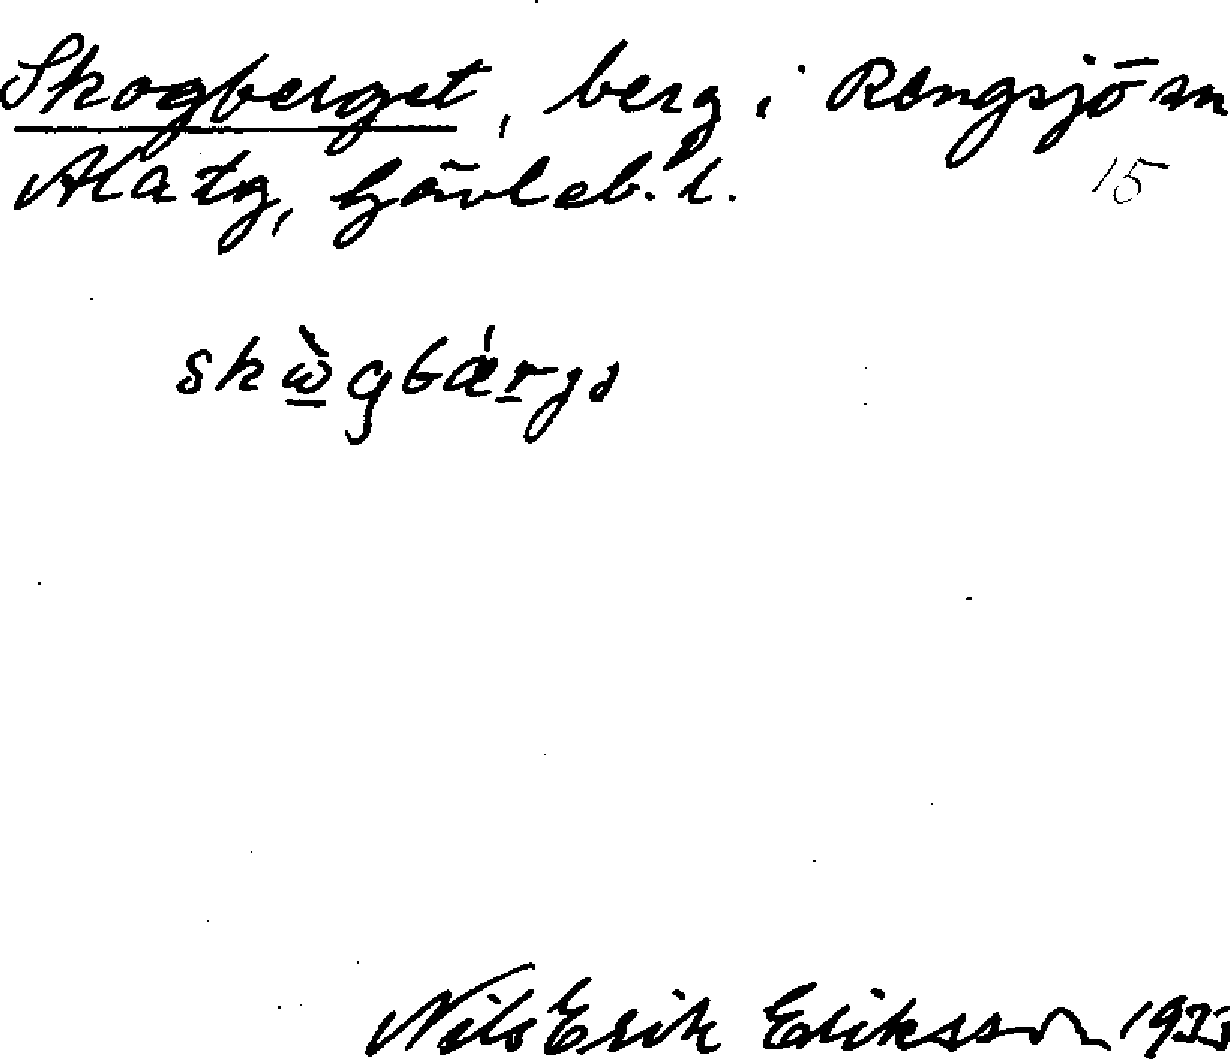 Skogberget, berg i Rengsjö sn
Ala tg, Gävleb. l.
15
skὼ̲gbǽr̲gə
Nils Erik Eriksson 1933